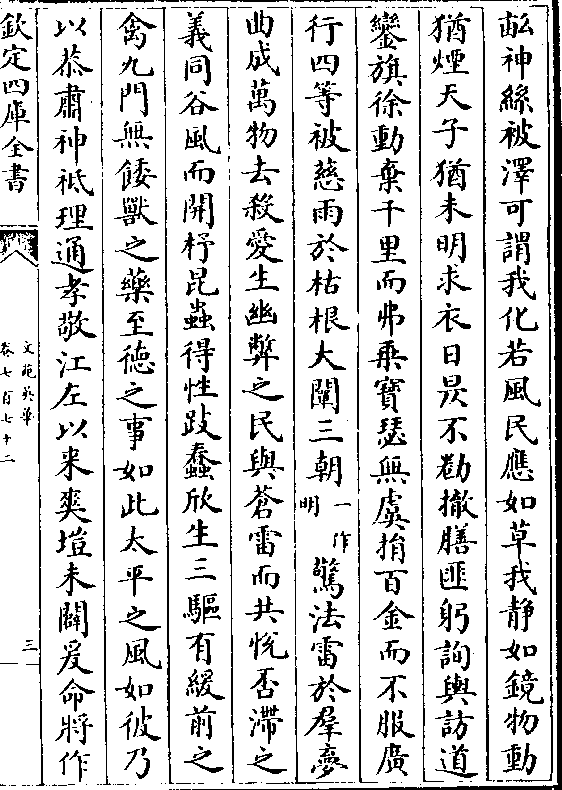 㕁神絲被澤可謂我化若風民應如草我静如鏡物動
猶煙天子猶未明求衣日昃不勌撤膳匪躬詢輿訪道
鑾旗徐動棄千里而弗乗寳瑟無虞捐百金而不服廣
行四等被慈雨於枯根大闡三朝一作明驚法雷於羣夢
曲成萬物去殺愛生幽弊之民與蒼雷而共悦否滯之
義同谷風而開杼昆蟲得性跂蠢欣生三驅有緩前之
禽九門無餧獸之藥至徳之事如此太平之風如彼乃
以恭肅神祇理通孝敬江左以来爽塏未闢爰命將作
欽定四庫全書
文苑英華
卷七百七十二
三